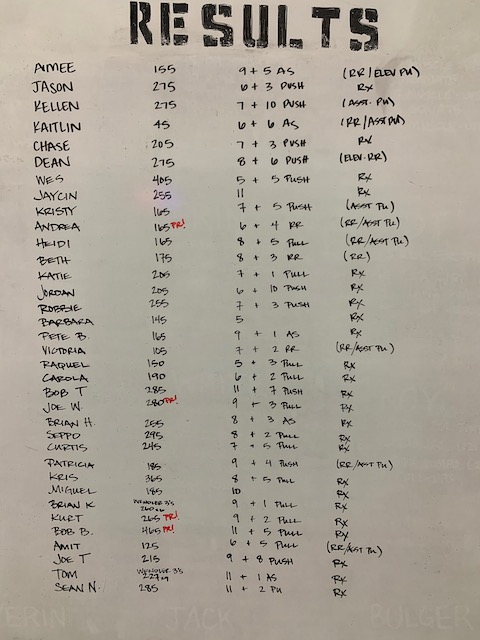 RESULTS
AIMEE 155 9 + 5 AS (RR/ELEV PU)
JASON 275 6 + 3 PUSH Rx
KELLEN 275 7 + 10 PUSH (ASST. PU)
KAITLIN 45 6 + 6 AS (RR/ASST PU)
CHASE 205 7 + 3 PUSH Rx
DEAN 275 8 + 6 PUSH (ELEV. RR)
WES 405 5 + 5 PUSH Rx
JAYCIN 255 11 Rx
KRISTY 165 7 + 5 PUSH (ASST PU)
ANDREA 165 PR! 6 + 4 RR (RR/ASST PU)
HEIDI 165 8 + 5 PULL (RR/ASST PU)
BETH 175 8 + 3 RR (RR)
KATIE 205 7 + 1 PULL Rx
JORDAN 205 6 + 10 PUSH Rx
ROBBIE 255 7 + 3 PUSH Rx
BARBARA 145 5 Rx
PETE B. 165 9 + 1 AS Rx
VICTORIA 105 7 + 2 RR (RR/ASST PU)
RAQUEL 150 5 + 3 PULL Rx
CAROLA 190 6 + 2 PULL Rx
BOB T 285 11 + 7 PUSH Rx
JOE W. 280 PR! 9 + 3 PULL Rx
BRIAN H. 255 8 + 3 AS Rx
SEPPO 295 8 + 2 PULL Rx
CURTIS 245 7 + 5 PULL Rx
PATRICIA 185 9 + 4 PUSH (RR/ASST PU)
KRIS 365 8 + 5 PULL Rx
MIGUEL 185 10 Rx
BRIAN K WENDLER 3'S 260 9 + 1 PULL Rx
KURT 265 PR! 9 + 2 PULL Rx
BOB B. 465 PR! 11 + 5 PULL Rx
AMIT 125 6 + 5 PULL (RR/ASST PU)
JOE T 215 9 + 8 PUSH Rx
TOM WENDLER 3'S 227 11 + 1 AS Rx
SEAN N. 285 11 + 2 PU Rx
ERIN JACK BULGER